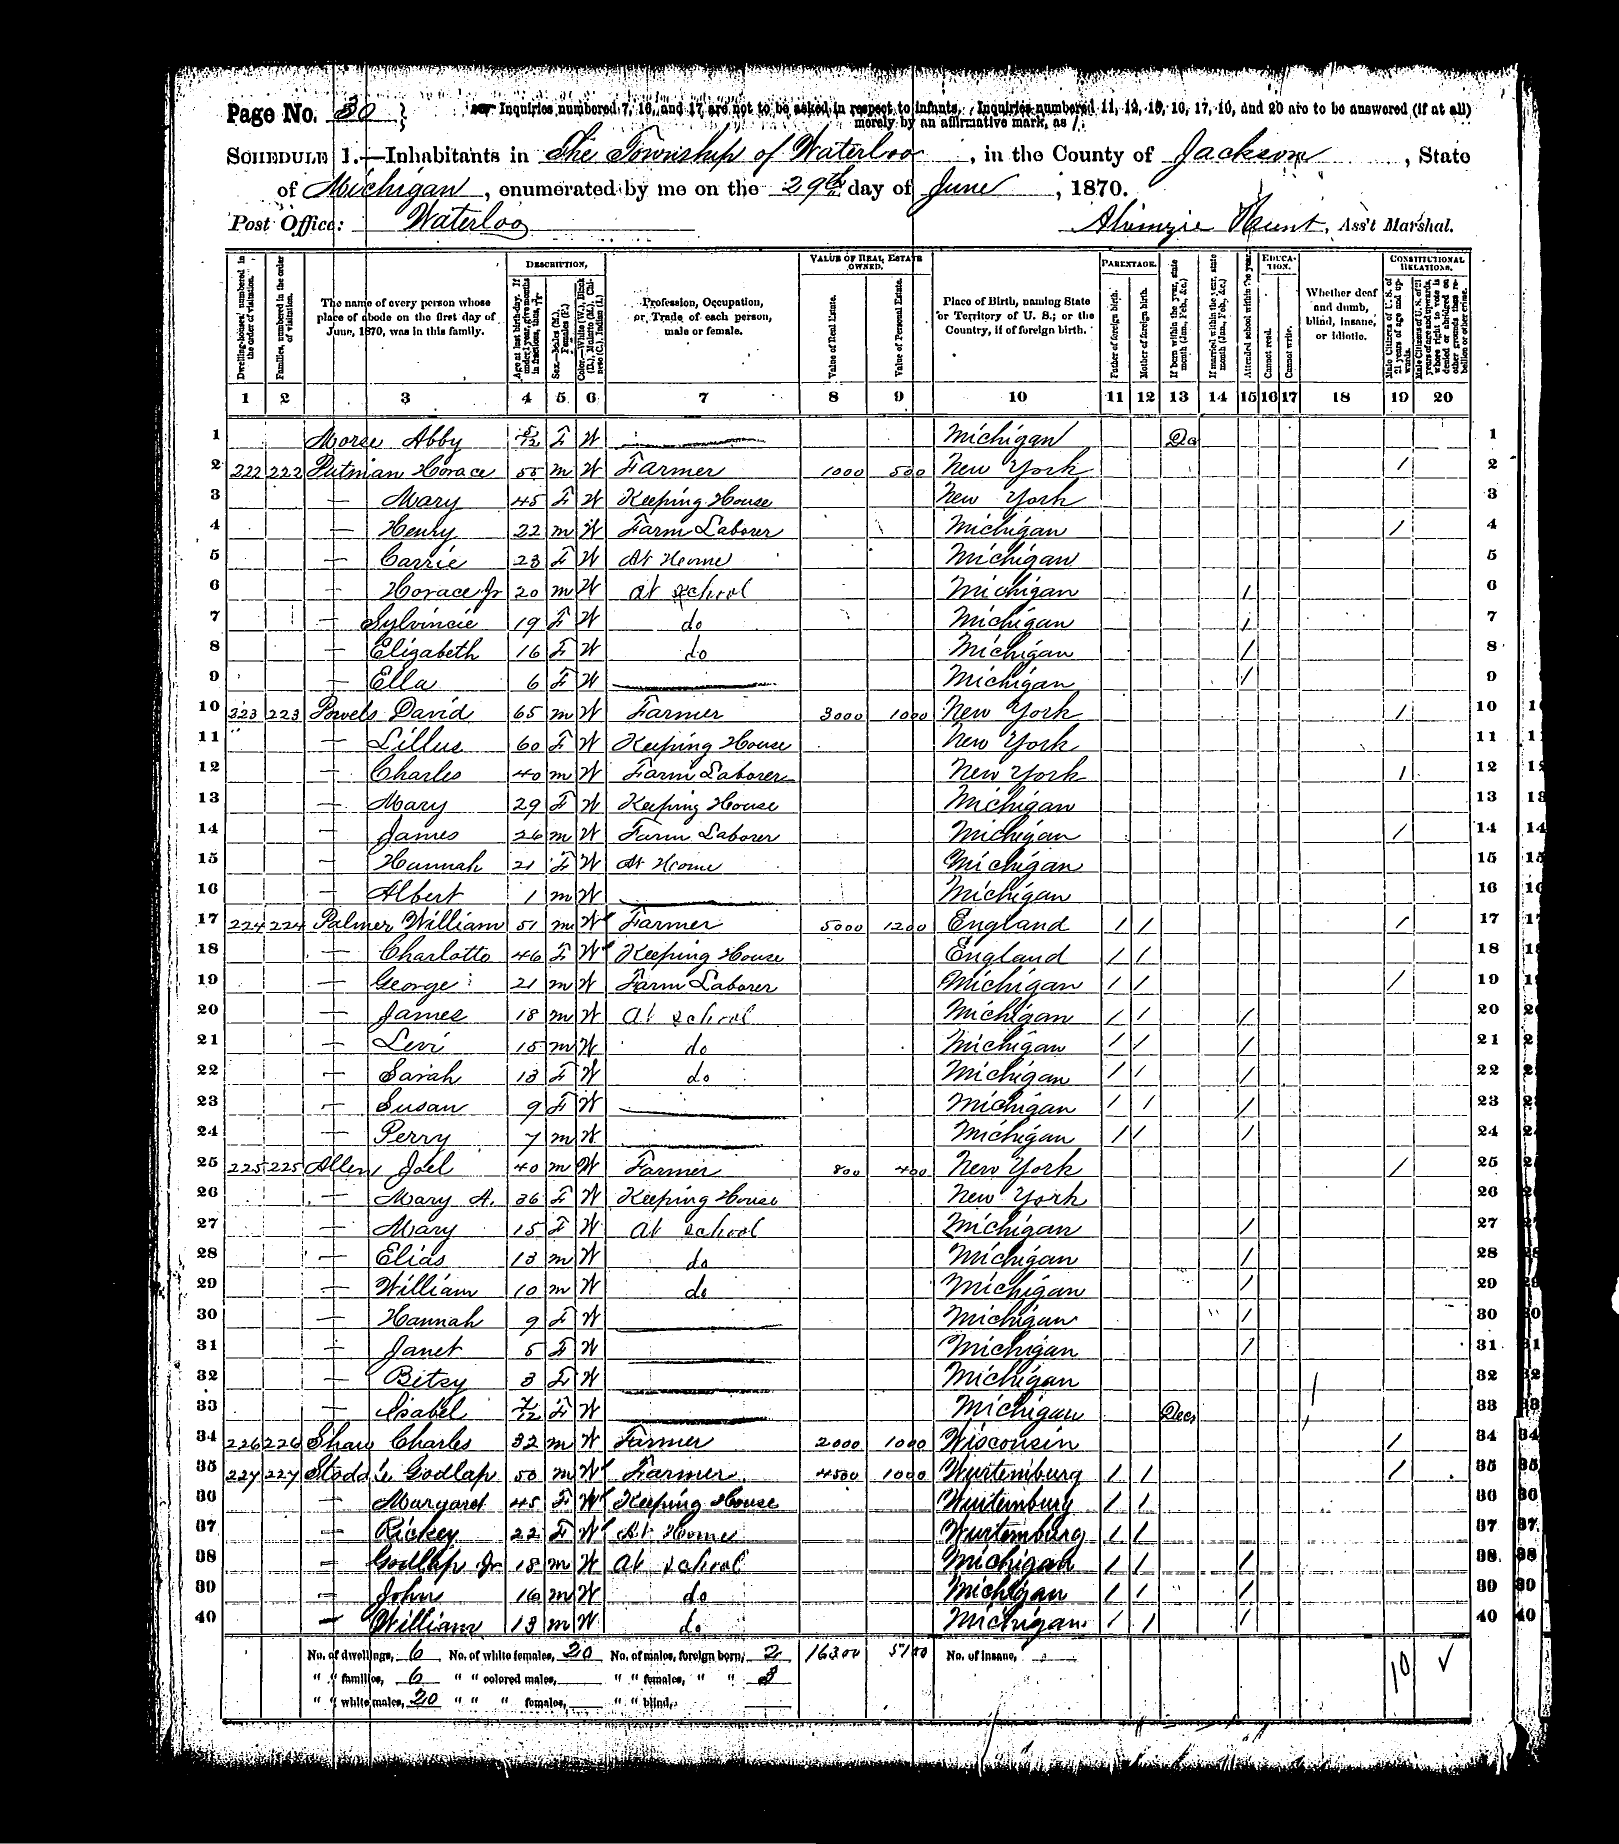 Page No. 30 } Inquiries numbered 7, 16, and 17 are not to be asked in respect to infants. Inquiries numbered 11, 12, 15, 16, 17, 19, and 20 are to be answered (if at all)
merely by an affirmative mark, as /.
SCHEDULE 1.—Inhabitants in The Township of Waterloo, in the County of Jackson, State
of Michigan, enumerated by me on the 29th day of June, 1870.
Post Office: Waterloo Hunt, Ass't Marshal.
DESCRIPTION. VALUE OF REAL ESTATE OWNED. PARENTAGE. EDUCATION. CONSTITUTIONAL RELATIONS.
Dwelling-houses, numbered in the order of visitation. Families, numbered in the order of visitation. The name of every person whose place of abode on the first day of June, 1870, was in this family. Age at last birth-day. If under 1 year, give months in fractions, thus, Sex.—Males (M.), Females (F.) Color.—White (W.), Black (B.), Mulatto (M.), Chinese (C.), Indian (I.) Profession, Occupation, or Trade of each person, male or female. Value of Real Estate. Value of Personal Estate. Place of Birth, naming State or Territory of U. S.; or the Country, if of foreign birth. Father of foreign birth. Mother of foreign birth. If born within the year, state month (Jan., Feb., &c.) If married within the year, state month (Jan., Feb., &c.) Attended school within the year. Cannot read. Cannot write. Whether deaf and dumb, blind, insane, or idiotic. Male Citizens of U. S. of 21 years of age and upwards. Male Citizens of U. S. of 21 years of age and upwards, whose right to vote is denied or abridged on other grounds than rebellion or other crime.
1 2 3 4 5 6 7 8 9 10 11 12 13 14 15 16 17 18 19 20
1 Morse Abby 5/12 F W Michigan 1
2 222 222 Putman Horace 55 m W Farmer 1000 500 New York / 2
3 — Mary 45 F W Keeping House New York 3
4 — Henry 22 m W Farm Laborer Michigan / 4
5 — Carrie 23 F W At Home Michigan 5
6 — Horace Jr 20 m W at school Michigan / 6
7 — Sylvincie 19 F W do Michigan / 7
8 — Elizabeth 16 F W do Michigan / 8
9 — Ella 6 F W Michigan / 9
10 223 223 Powels David 65 m W Farmer 3000 1000 New York / 10
11 — Lillus 60 F W Keeping House New York 11
12 — Charles 40 m W Farm Laborer New York / 12
13 — Mary 29 F W Keeping House Michigan 13
14 — James 26 m W Farm Laborer Michigan / 14
15 — Hannah 21 F W At Home Michigan 15
16 — Albert 1 m W Michigan 16
17 224 224 Palmer William 51 m W Farmer 5000 1200 England / / / 17
18 — Charlotte 46 F W Keeping House England / / 18
19 — George 21 m W Farm Laborer Michigan / / / 19
20 — James 18 m W At school Michigan / / / 20
21 — Levi 15 m W do Michigan / / / 21
22 — Sarah 13 F W do Michigan / / / 22
23 — Susan 9 F W Michigan / / / 23
24 — Perry 7 m W Michigan / / / 24
25 225 225 Allen Joel 40 m W Farmer 800 400 New York / 25
26 — Mary A. 36 F W Keeping House New York 26
27 — Mary 15 F W At school Michigan / 27
28 — Elias 13 m W do Michigan / 28
29 — William 10 m W do Michigan / 29
30 — Hannah 9 F W Michigan / 30
31 — Janet 5 F W Michigan / 31
32 — Betsy 3 F W Michigan 32
33 — Isabel 7/12 F W Michigan Dec 33
34 226 226 Shaw Charles 32 m W Farmer 2000 1000 Wisconsin / 34
35 227 227 Godlap 50 m W Farmer 4500 1000 Wurtemburg / / / 35
36 — Margaret 45 F W Keeping House Wurtemburg / / 36
37 — Rickey 22 F W At Home Wurtemburg / / 37
38 — Godlap Jr 18 m W At school Michigan / / / 38
39 — John 16 m W do Michigan / / / 39
40 — William 13 m W do Michigan / / / 40
No. of dwellings, 6 No. of white females, 20 No. of males, foreign born, 2 16300 5100 No. of insane, 10 ✓
" " families, 6 " " colored males, " " females, " " 3
" " white males, 20 " " " females, " " blind,